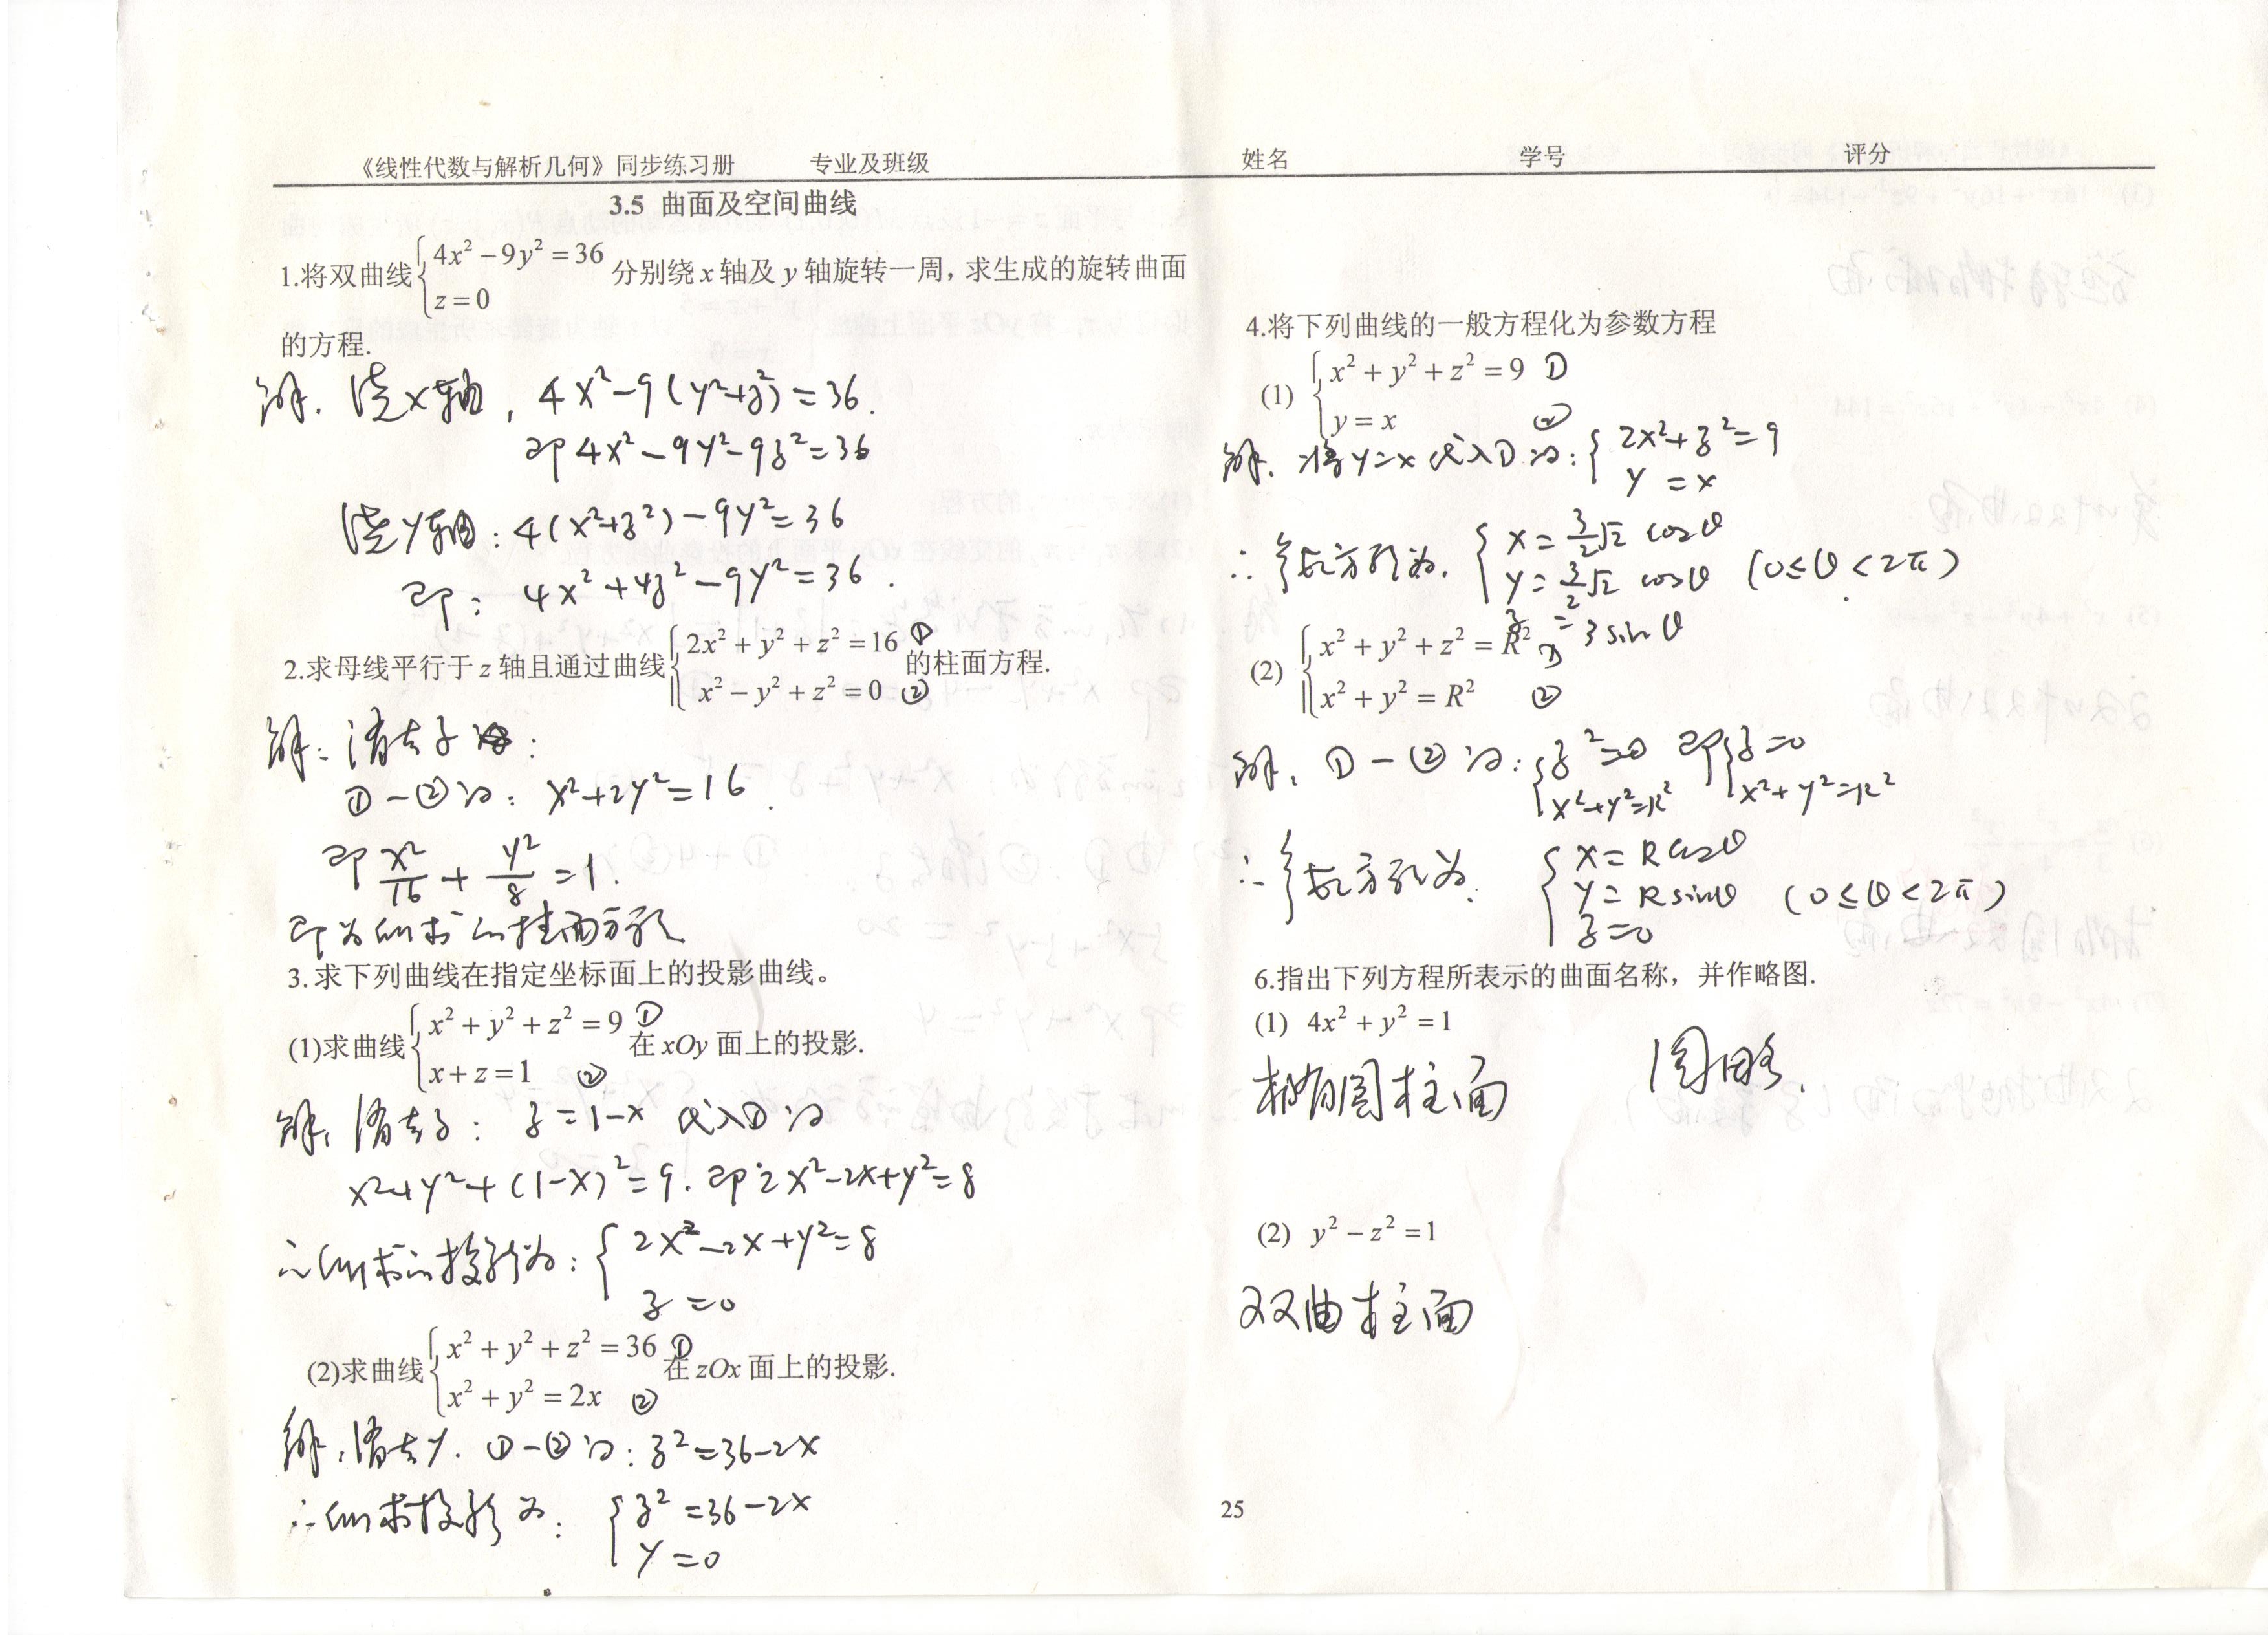 《线性代数与解析几何》同步练习册 专业及班级 姓名 学号 评分
3.5 曲面及空间曲线
1.将双曲线{4x² − 9y² = 36, z = 0 分别绕 x 轴及 y 轴旋转一周，求生成的旋转曲面
的方程.
解. 绕x轴, 4x²−9(y²+z²)=36.
即 4x²−9y²−9z²=36
绕y轴: 4(x²+z²)−9y²=36
即: 4x²+4z²−9y²=36.
2.求母线平行于 z 轴且通过曲线{2x² + y² + z² = 16 ①, x² − y² + z² = 0 ② 的柱面方程.
解: 消去z:
①−②得: x²+2y²=16.
即 x²/16 + y²/8 = 1.
即为所求的柱面方程
3.求下列曲线在指定坐标面上的投影曲线。
(1)求曲线{x² + y² + z² = 9 ①, x + z = 1 ② 在 xOy 面上的投影.
解: 消去z: z=1−x 代入①得
x²+y²+(1−x)²=9. 即2x²−2x+y²=8
∴所求的投影为: {2x²−2x+y²=8
z=0
(2)求曲线{x² + y² + z² = 36 ①, x² + y² = 2x ② 在 zOx 面上的投影.
解: 消去y. ①−②得: z²=36−2x
∴所求投影为: {z²=36−2x
y=0
4.将下列曲线的一般方程化为参数方程
(1) {x² + y² + z² = 9 ①
y = x ②
解. 将y=x代入①得: {2x²+z²=9
y=x
∴参数方程为. {x=3/2√2 cosθ
y=3/2√2 cosθ (0≤θ<2π)
z=3sinθ
(2) {x² + y² + z² = R² ①
x² + y² = R² ②
解: ①−②得: {z²=0 即{z=0
x²+y²=R² x²+y²=R²
∴参数方程为: {x=Rcosθ
y=Rsinθ (0≤θ<2π)
z=0
6.指出下列方程所表示的曲面名称，并作略图.
(1) 4x² + y² = 1
椭圆柱面 图略.
(2) y² − z² = 1
双曲柱面
25